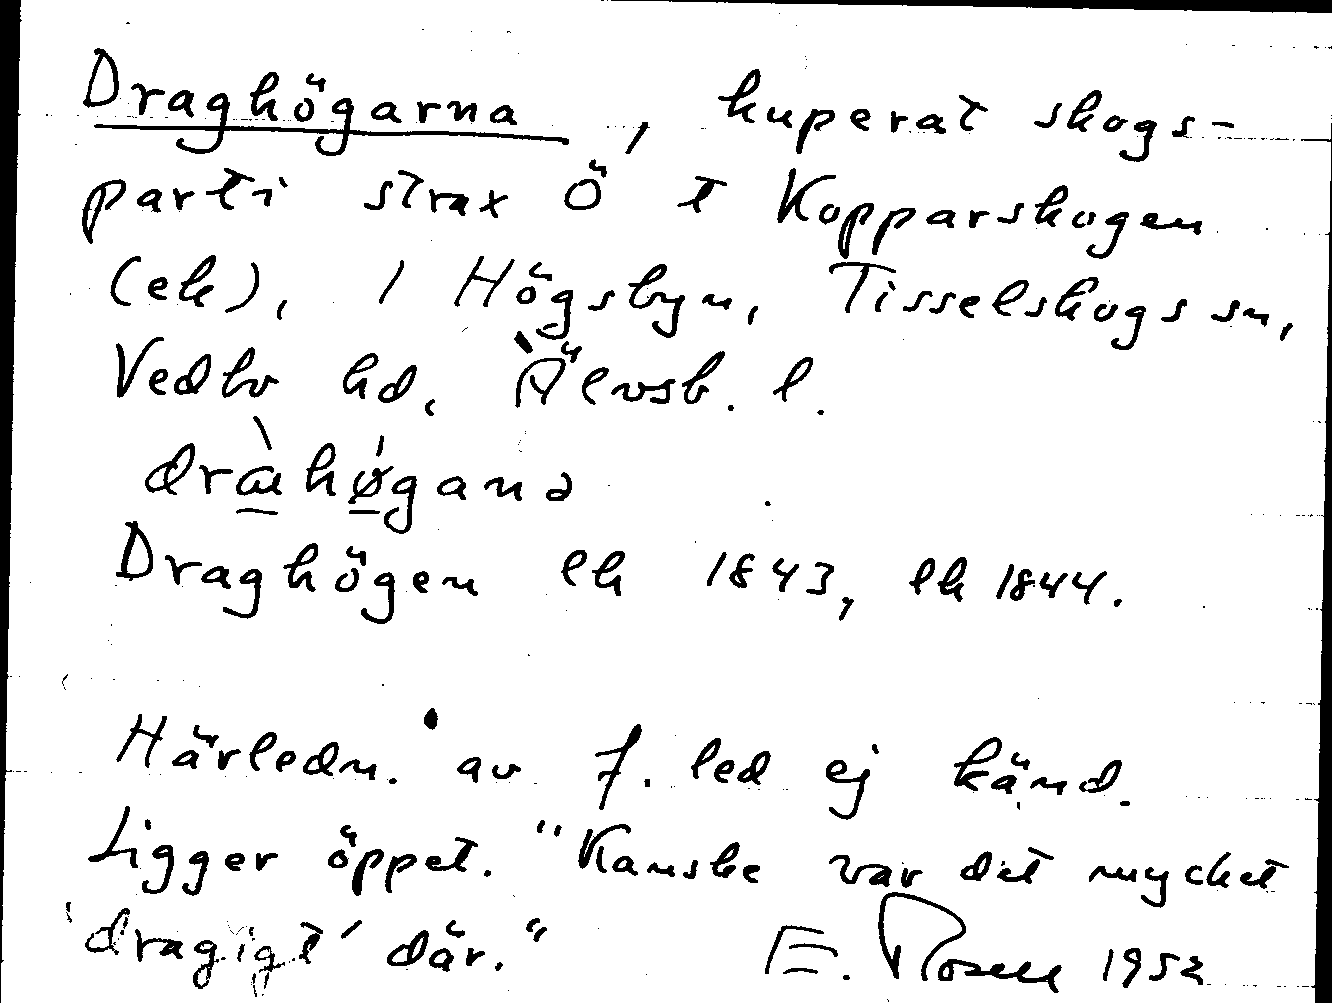 Draghögarna, kuperat skogs-
parti strax Ö t Kopparskogen
(ek), i Högsbyn, Tisselskogs sn,
Vedbo hd, Älvsb. l.
dræ̀hø̀ganə
Draghögen lk 1843, lk 1844.
Härledn. av f. led ej känd.
Ligger öppet. "Kanske var det mycket
'dragigt' där." E. Rosell 1952